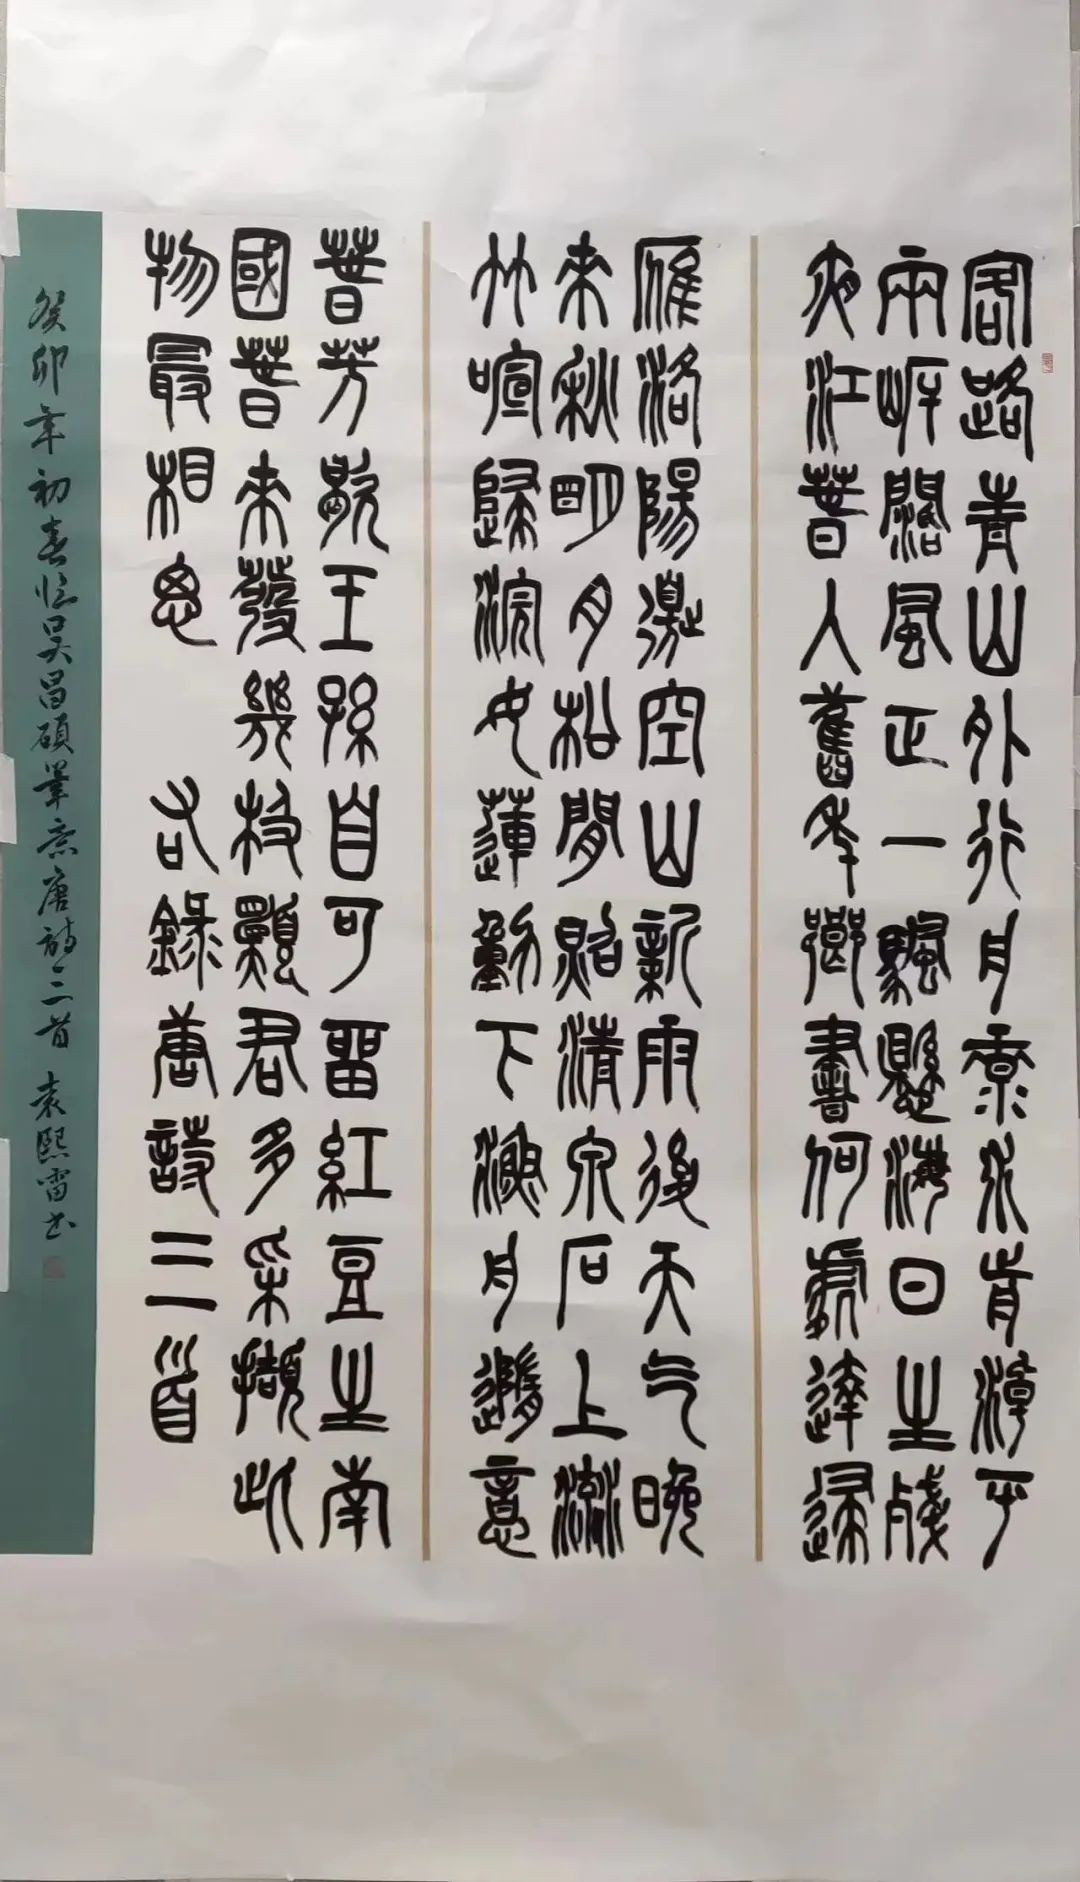 客路青山外行舟綠水前潮平
兩岸闊風正一帆懸海日生殘
夜江春入舊年鄉書何處達歸
雁洛陽邊空山新雨後天气晚
來秋明月松間照清泉石上流
竹喧歸浣女蓮動下漁舟隨意
春芳歇王孫自可留紅豆生南
國春來發幾枝願君多采擷此
物最相思 右錄唐詩三首
癸卯年初春临吴昌碩筆意唐詩三首 袁熙雷书